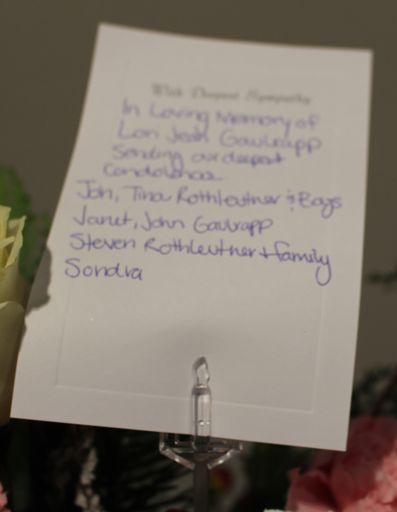 With Deepest Sympathy
In Loving Memory of
Lori Jean Gawrapp
Sending our deepest
Condolences
Jon, Tina Rothleutner & Boys
Janet, John Gawrapp
Steven Rothleutner + family
Sondra